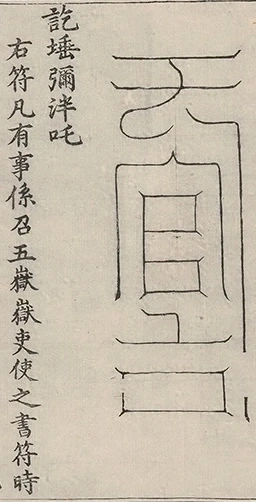 訖埵彌泮吒
右符凡有事係召五嶽嶽吏使之書符時